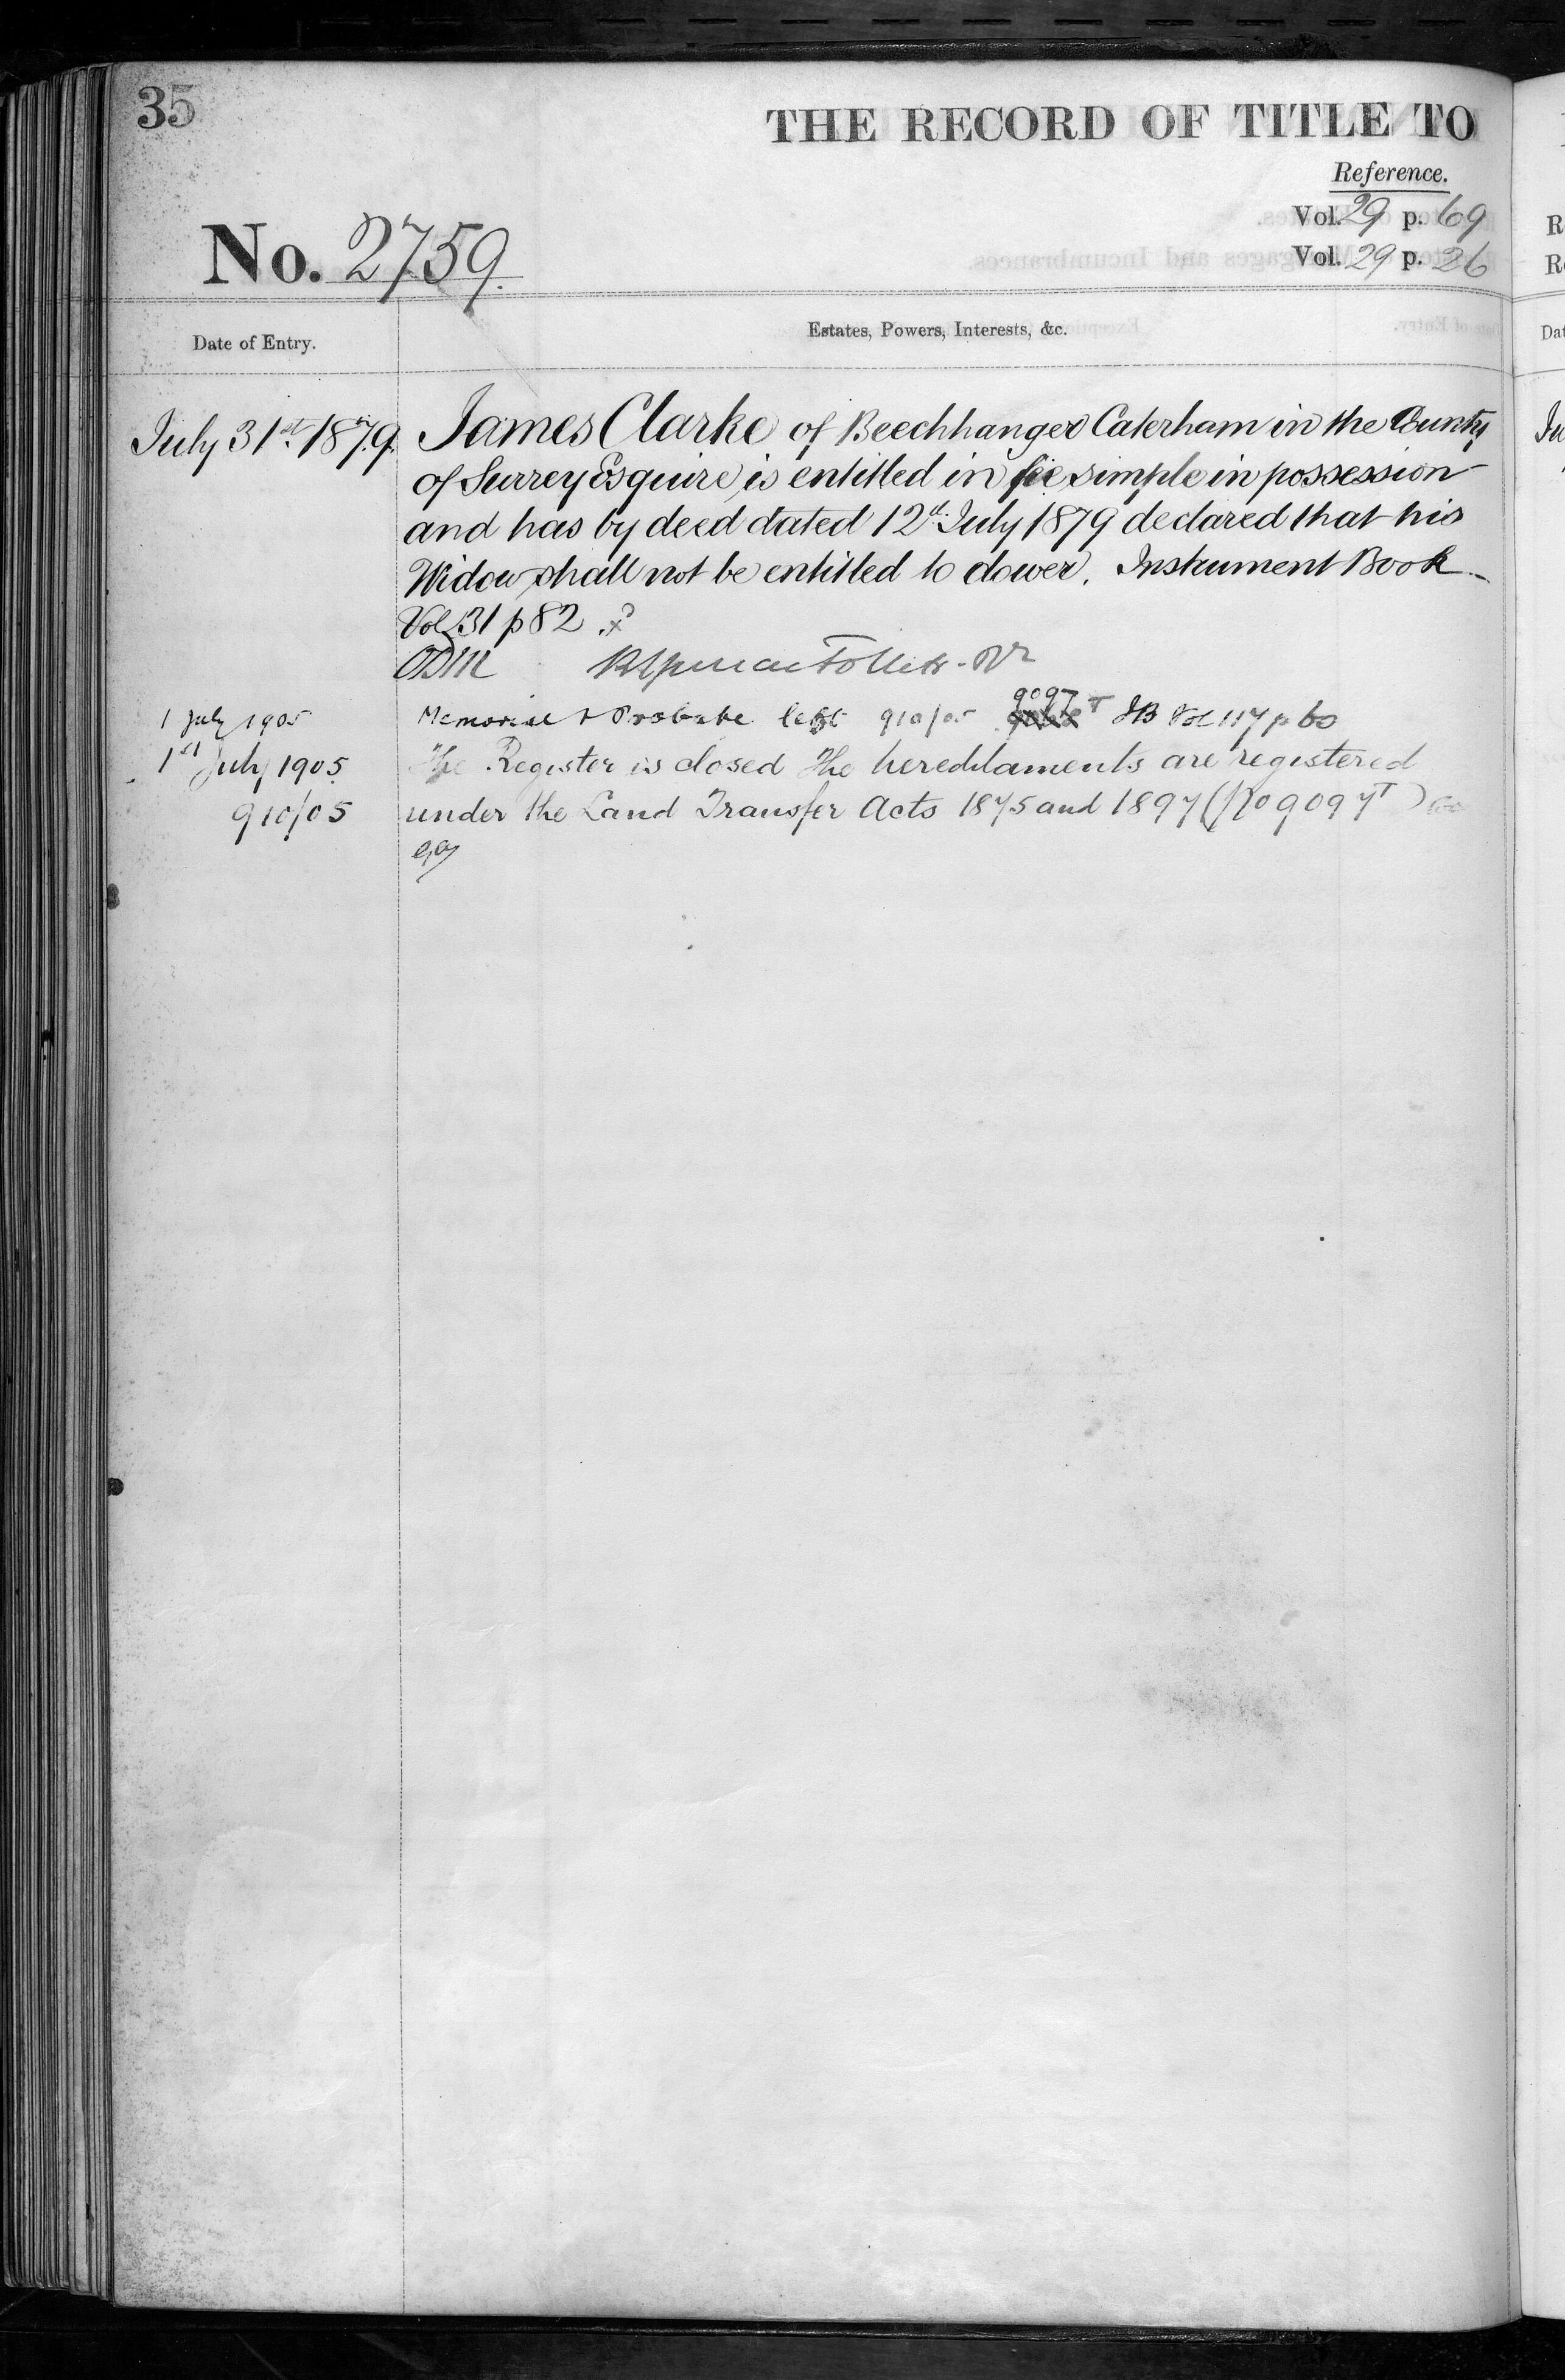 35
THE RECORD OF TITLE TO
Reference.
Vol. 29 p. 69
Vol. 29 p. 26
No. 2759.
Date of Entry.
Estates, Powers, Interests, &c.
July 31st 1879. James Clarke of Beechhanger Caterham in the County
of Surrey Esquire is entitled in fee simple in possession
and has by deed dated 12th July 1879 declared that his
Widow shall not be entitled to dower. Instrument Book
Vol 31 p 82
1 July 1905 Memorial & Probate left 910/05 9097 T IB Vol 117 p 60
1st July 1905 The Register is closed The hereditaments are registered
910/05 under the Land Transfer Acts 1875 and 1897 (No 9097T)